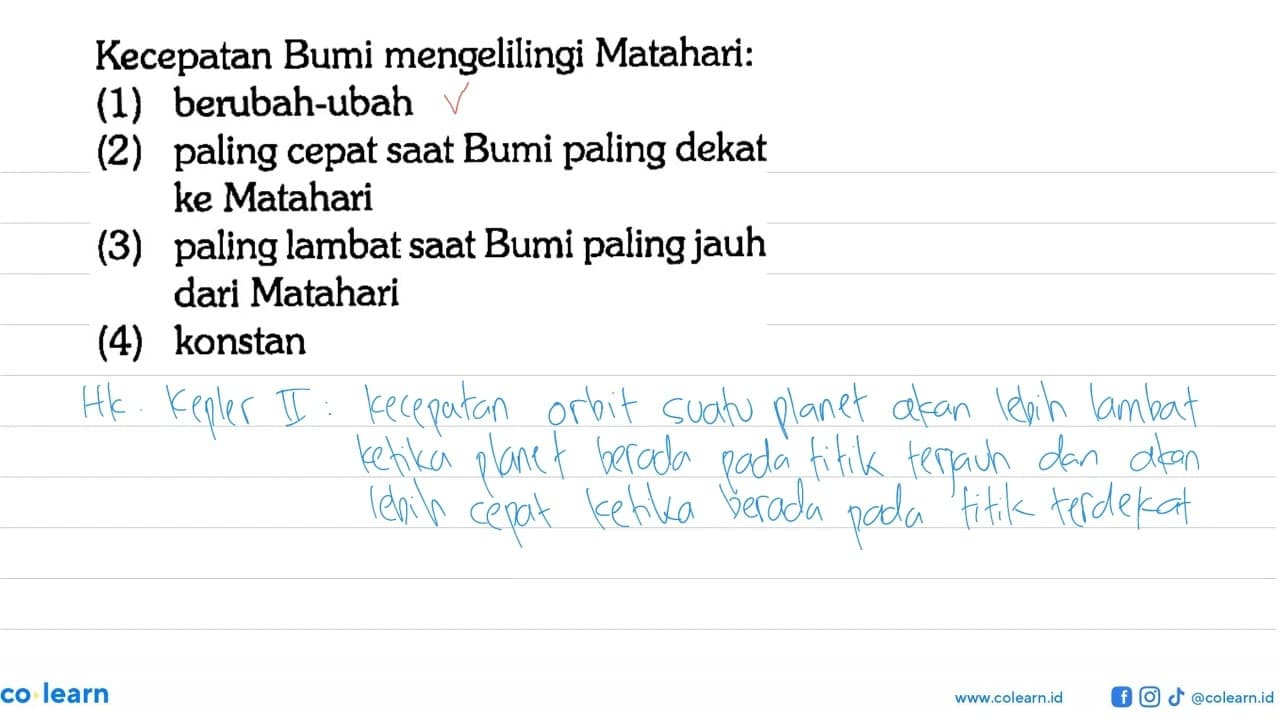 Kecepatan Bumi mengelilingi Matahari:
(1) berubah-ubah ✓
(2) paling cepat saat Bumi paling dekat
ke Matahari
(3) paling lambat saat Bumi paling jauh
dari Matahari
(4) konstan
Hk. Kepler II : kecepatan orbit suatu planet akan lebih lambat
ketika planet berada pada titik terjauh dan akan
lebih cepat ketika berada pada titik terdekat
co learn
www.colearn.id @colearn.id